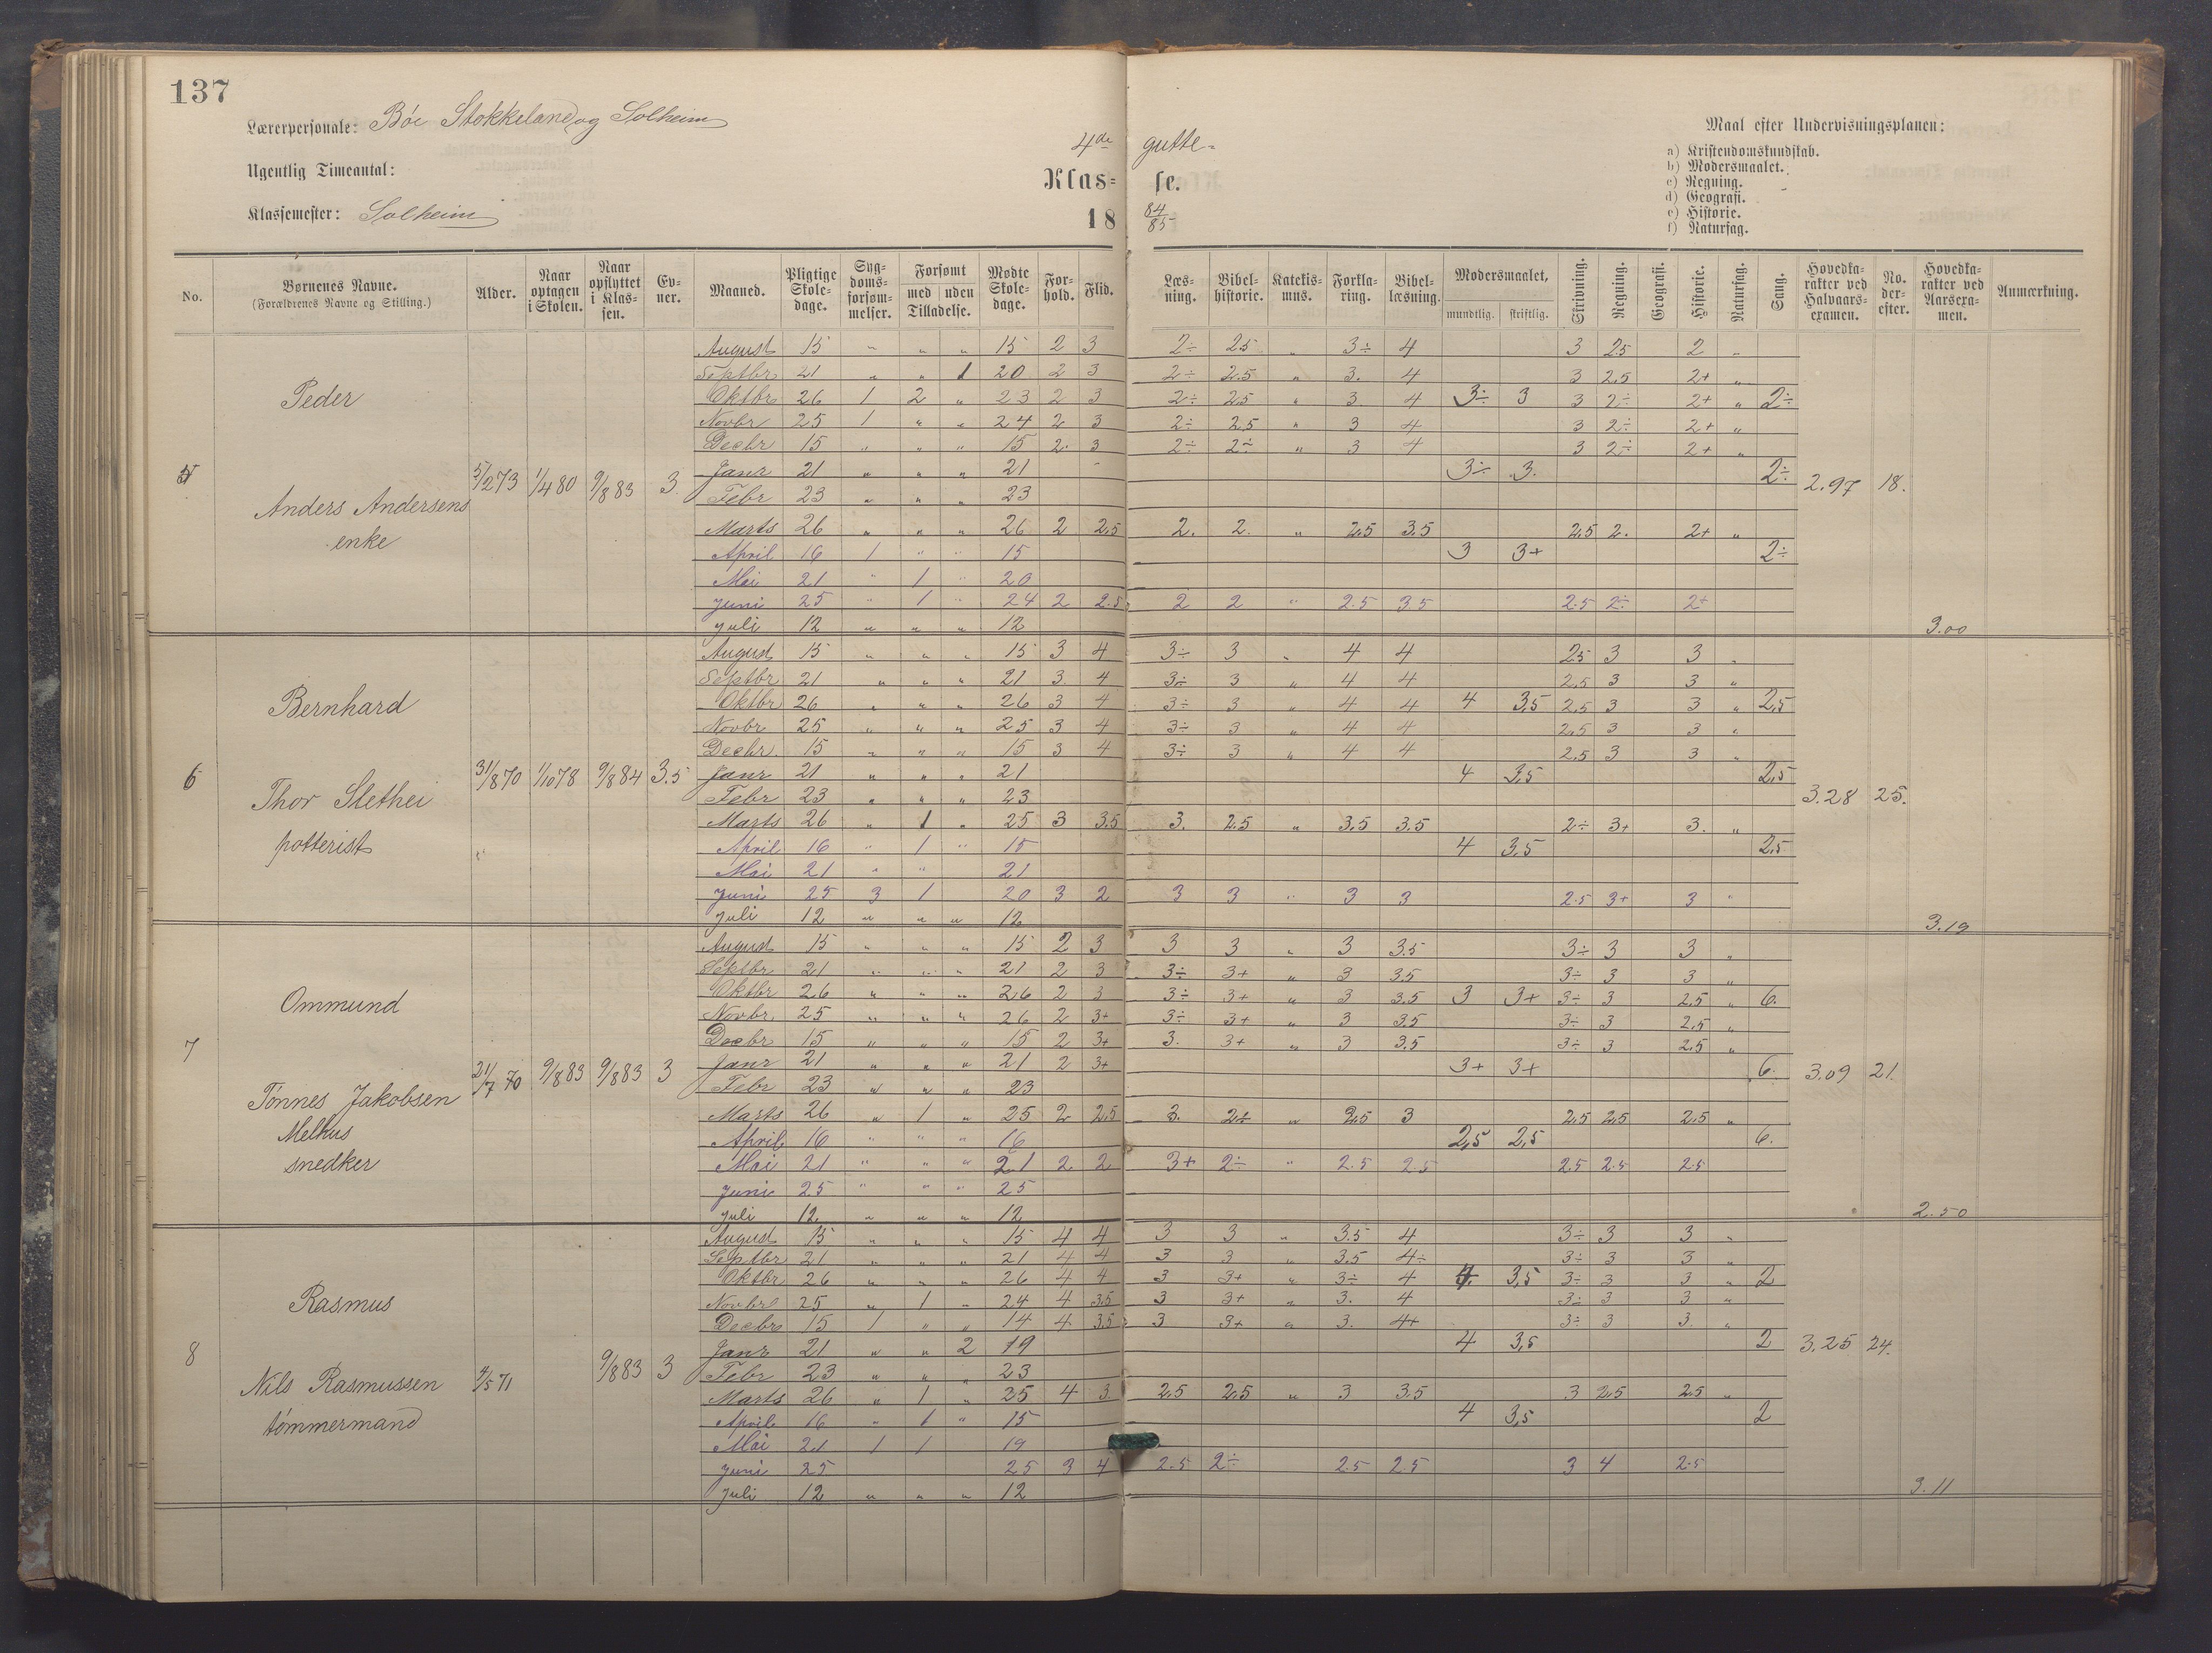 137
Lærerpersonale: Bóe Stokkeland og Solheim
Ugentlig Timeantal:
Klassemester: Solheim
4de gutte-
Klas- se.
18 84/85
Maal efter Undervisningsplanen:
a) Kristendomskundskab.
b) Modersmaalet.
c) Regning.
d) Geografi.
e) Historie.
f) Naturfag.
No. | Børnenes Navne. (Forældrenes Navne og Stilling.) | Alder. | Naar optagen i Skolen. | Naar opflyttet i Klassen. | Evner. | Maaned. | Pligtige Skoledage. | Sygdomsforsømmelser. | Forsømt med uden Tilladelse. | Mødte Skoledage. | Forhold. | Flid. | Læsning. | Bibelhistorie. | Katekismus. | Forklaring. | Bibellæsning. | Modersmaalet, mundtlig. skriftlig. | Skrivning. | Regning. | Geografi. | Historie. | Naturfag. | Sang. | Hovedkarakter ved Halvaarsexamen. | No. derefter. | Hovedkarakter ved Aarsexamen. | Anmærkning.
5 Peder
Anders Andersens
enke
5/2 73 1/4 80 9/8 83 3. 2.97 18. 3.00
August 15 " " " 15 2 3 2÷ 2.5 " 3÷ 4 3 2.5 2 "
Septbr 21 " " 1 20 2 3 2÷ 2.5 " 3. 4 3 2,5 2+ "
Oktbr 26 1 2 " 23 2 3 2÷ 2.5 " 3 4 3÷ 3 3 2÷ 2+ " 2÷
Novbr 25 1 " " 24 2 3 2÷ 2.5 " 3 4 3 2÷ 2+ "
Decbr 15 " " " 15 2 3 2÷ 2÷ " 3 4 3 2÷ 2+ "
Janr 21 " " " 21 3÷ 3. 2÷
Febr 23 " " " 23
Marts 26 " " " 26 2 2,5 2. 2. " 2,5 3.5 2,5 2. 2+ "
April 16 1 " " 15 3 3+ 2÷
Mai 21 " 1 " 20
Juni 25 " 1 " 24 2 2.5 2 2 " 2.5 3.5 2.5 2÷ 2+
Juli 12 " " " 12
6 Bernhard
Thor Slethei
potterist
31/8 70 1/10 78 9/8 84 3.5 3.28 25. 3.19
August 15 " " " 15 3 4 3÷ 3 " 4 4 2.5 3 3 "
Septbr 21 " " " 21 3 4 3÷ 3 " 4 4 2.5 3 3 "
Oktbr 26 " " " 26 3 4 3÷ 3 " 4 4 4 3,5 2.5 3 3 " 2,5
Novbr 25 " " " 25 3 4 3÷ 3 " 4 4 2,5 3 3 "
Decbr 15 " " " 15 3 4 3÷ 3 " 4 4 2,5 3 3 "
Janr 21 " " " 21 4 3,5 2,5
Febr 23 " " " 23
Marts 26 " 1 " 25 3 3.5 3. 2.5 " 3.5 3.5 2÷ 3+ 3. "
April 16 " 1 " 15 4 3,5 2,5
Mai 21 " " 21
Juni 25 3 1 20 3 2 3 3 " 3 3 2.5 3+ 3 "
Juli 12 " " " 12
7 Ommund
Tónnes Jakobsen
Melhus
snedker
21/7 70 9/8 83 9/8 83 3 3.09 21. 2.50
August 15 " " " 15 2 3 3 3 " 3 3.5 3÷ 3 3 "
Septbr 21 " " " 21 2 3 3÷ 3+ " 3 3.5 3÷ 3 3 "
Oktbr 26 " " " 26 2 3 3÷ 3+ " 3 3.5 3 3+ 3÷ 3 2.5 " 6.
Novbr 25 " " " 26 2 3+ 3÷ 3+ " 3 3.5 3÷ 3 2.5 "
Decbr 15 " " " 15 2 3+ 3. 3+ " 3 3.5 3÷ 3 2.5 "
Janr 21 " " " 21 2 3+ 3+ 3+ 6.
Febr 23 " " " 23
Marts 26 " 1 " 25 2 2.5 3. 2÷ " 2.5 3 2.5 2.5 2.5 "
April 16 " " " 16 2,5 2,5 6.
Mai 21 " " " 21 2 2 3+ 2÷ " 2.5 2.5 2.5 2.5 2.5
Juni 25 " " " 25
Juli 12 " " " 12
8 Rasmus
Nils Rasmussen
tómmermand
4/5 71 9/8 83 3 3.25 24. 3.11
August 15 " " " 15 4 4 3 3 " 3.5 4 3÷ 3 3 "
Septbr 21 " " " 21 4 4 3 3 " 3.5 4÷ 3÷ 3 3 "
Oktbr 26 " " " 26 4 4 3 3+ " 3÷ 4 4. 3,5 3÷ 3 3 " 2
Novbr 25 " 1 " 24 4 3.5 3 3+ " 3. 4 3÷ 3 3 "
Decbr 15 1 " " 14 4 3.5 3 3+ " 3. 4+ 3÷ 3 3. "
Janr 21 " " 2 19 4 3,5 2
Febr 23 " " " 23
Marts 26 " 1 " 25 4 3. 2.5 2.5 " 3 3.5 3 2.5 2.5 "
April 16 " 1 " 15 4 3,5 2
Mai 21 1 1 19
Juni 25 25 3 4 2.5 2÷ 2.5 2.5 3 4 2.5
Juli 12 " " " 12